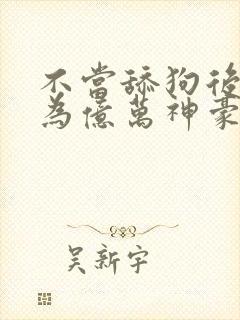 不當舔狗後
為億萬神豪
吳新宇